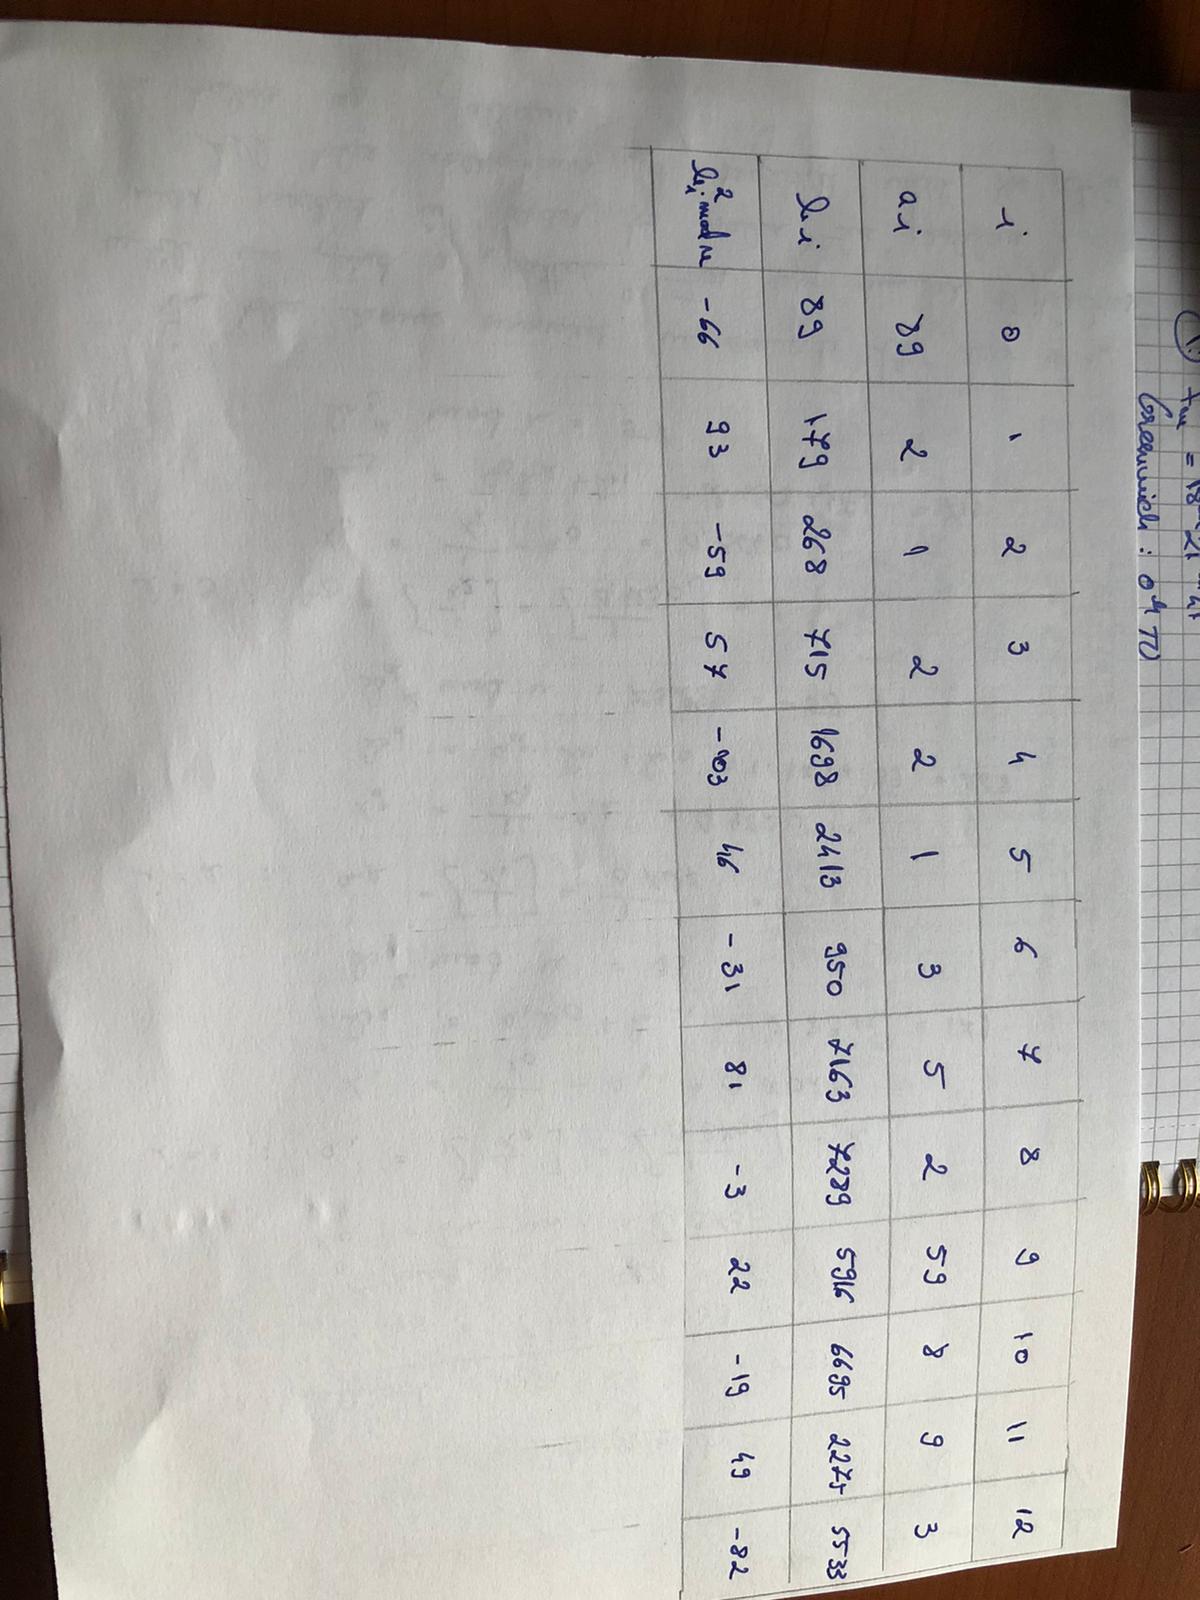 Greenwich : 0h TU
i 0 1 2 3 4 5 6 7 8 9 10 11 12
ai 89 2 1 2 2 1 3 5 2 59 8 9 3
bi 89 179 268 715 1698 2413 950 7163 7289 5916 6695 2275 5533
bi² mod n -66 93 -59 57 -103 46 -31 81 -3 22 -19 49 -82